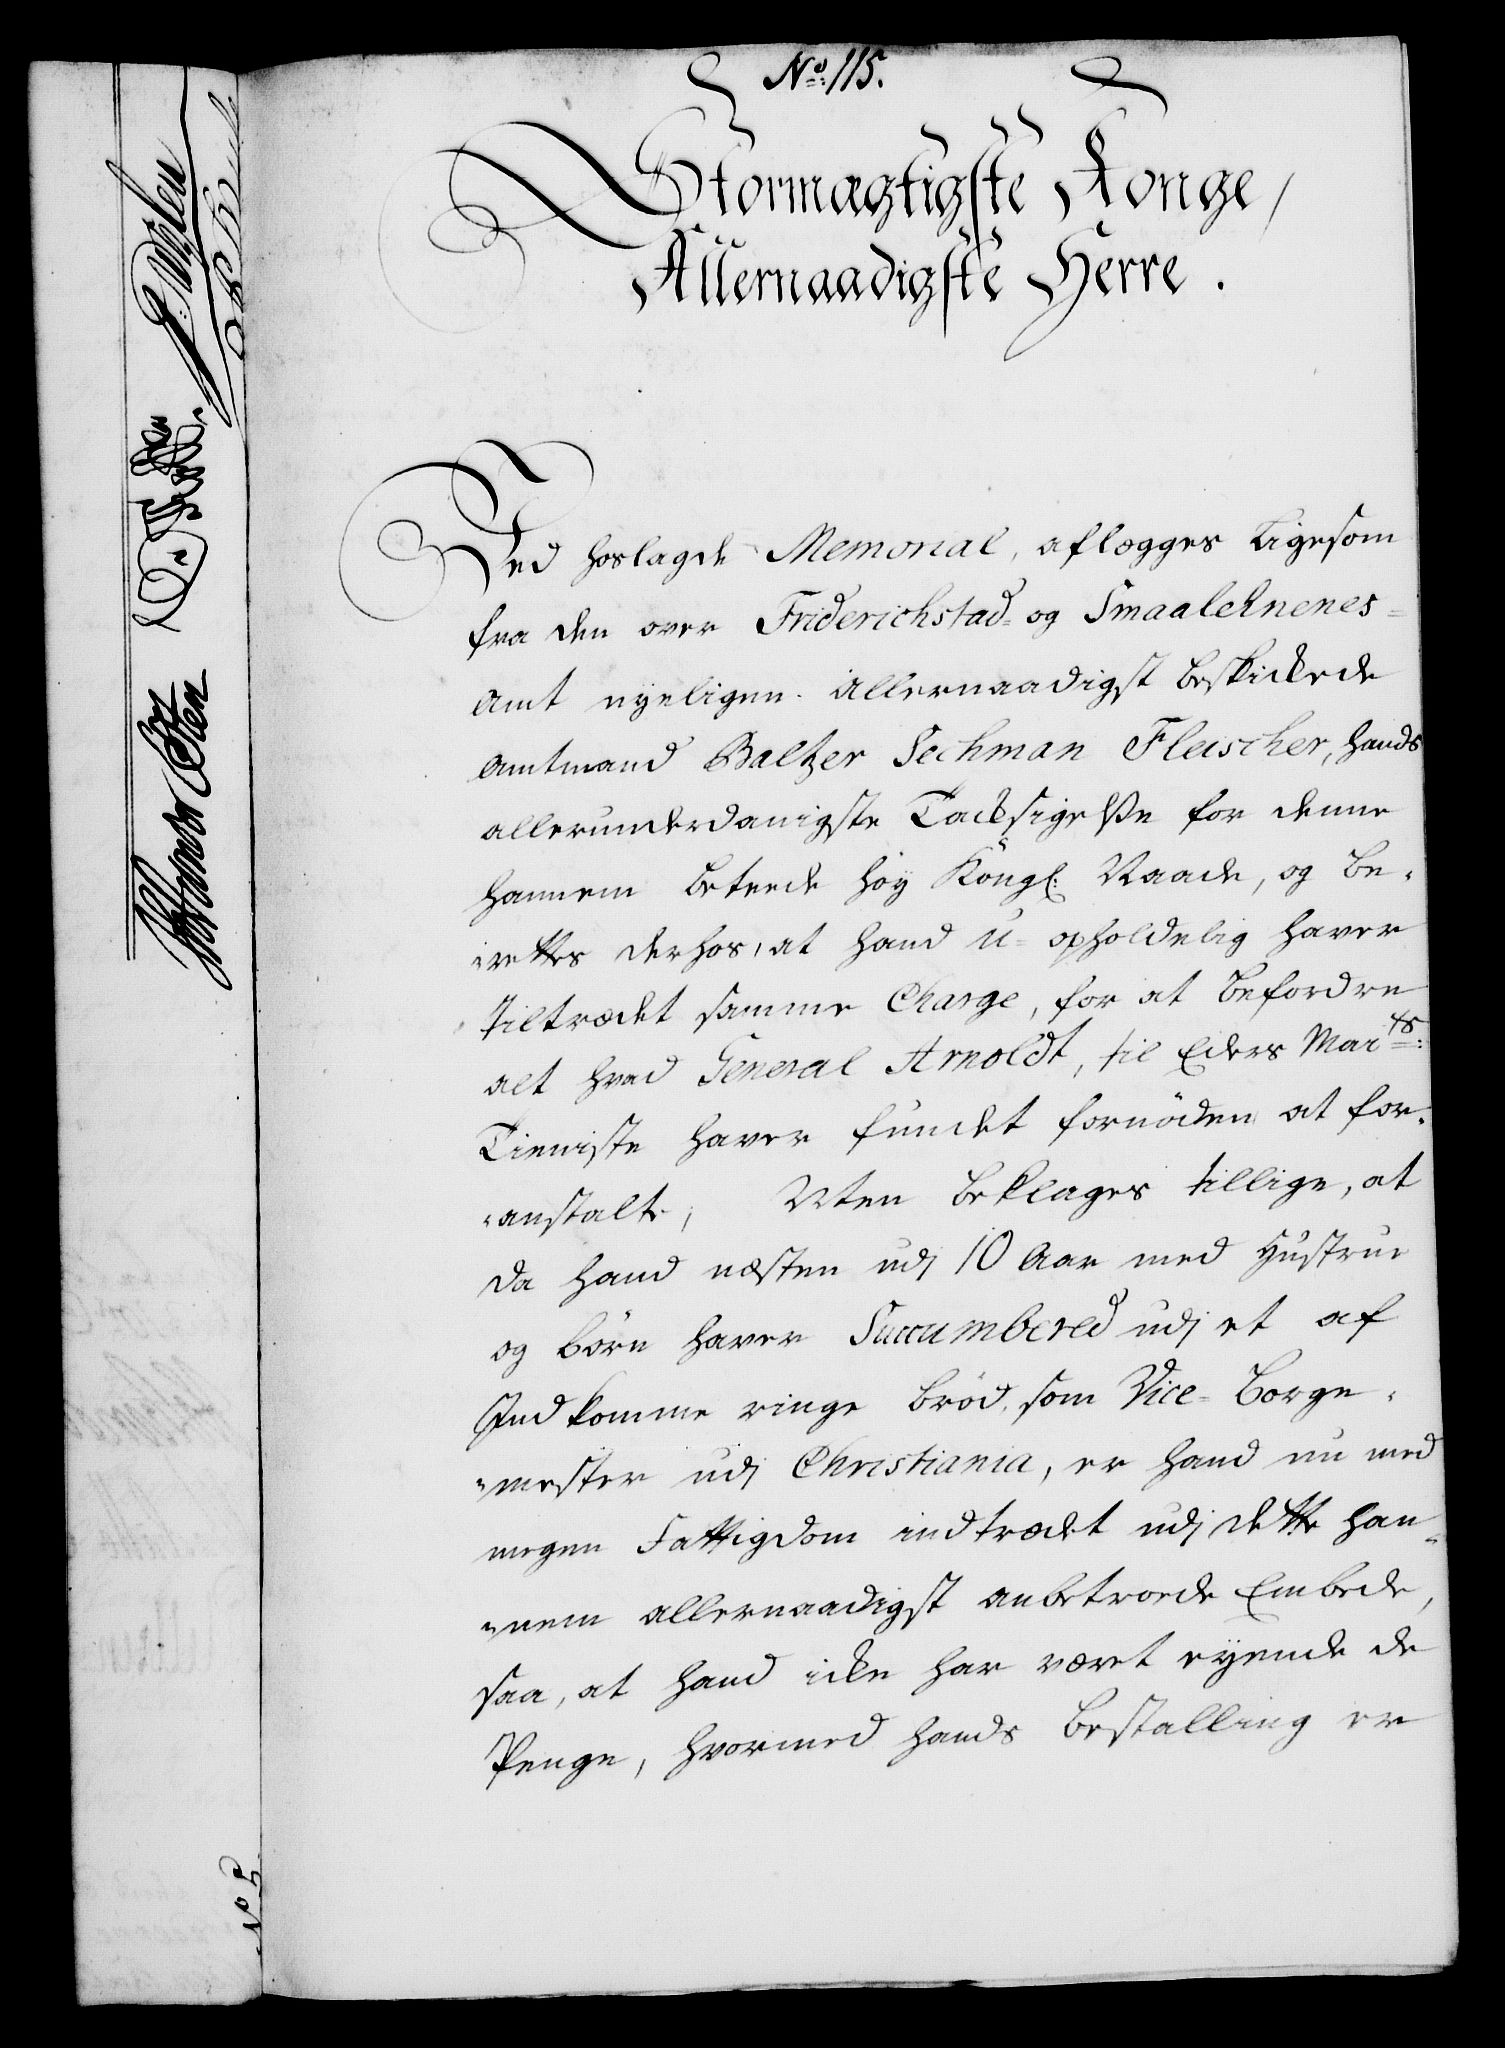 No: 115.
Stormægtigste Konge,
Allernaadigste Herre.
Ved hoslagde Memorial, aflægges ligesom
fra den over Friderichstad= og Smaalehnenes=
Amt nyeligen allernaadigst beskickede
Amtmand Baltzer Sechman Fleischer, hands
allerunderdanigste Tacksigelse for denne
hannem beteede höy Kongl: Naade, og be-
-rettes derhos, at hand u=opholdelig haver
tiltrædet samme Charge, for at befordre
alt hvad General Arnoldt, til Eders Maits:
Tieniste haver fundet fornöden at for-
-anstalte, Men beklages tillige, at
da hand næsten udj 10 Aar med Hustrue
og börn haver Succumbered udj et af
Indkomme ringe bröd, som Vice-Borge-
-mester udj Christiania, er hand nu med
megen Fattigdom indtrædet udj dette han-
-nem allernaadigst anbetroede Embede,
saa, at hand icke har været eyende de
Penge, hvormed hands Bestalling er
No 5